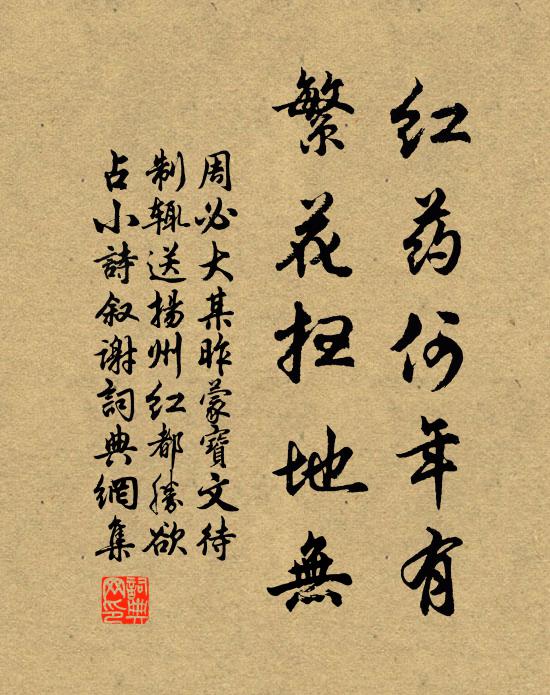 红药何年有
繁花扫地無
周必大某昨蒙寶文待
制辄送揚州红都勝欲
占小詩叙谢詞典網集
詞典网印